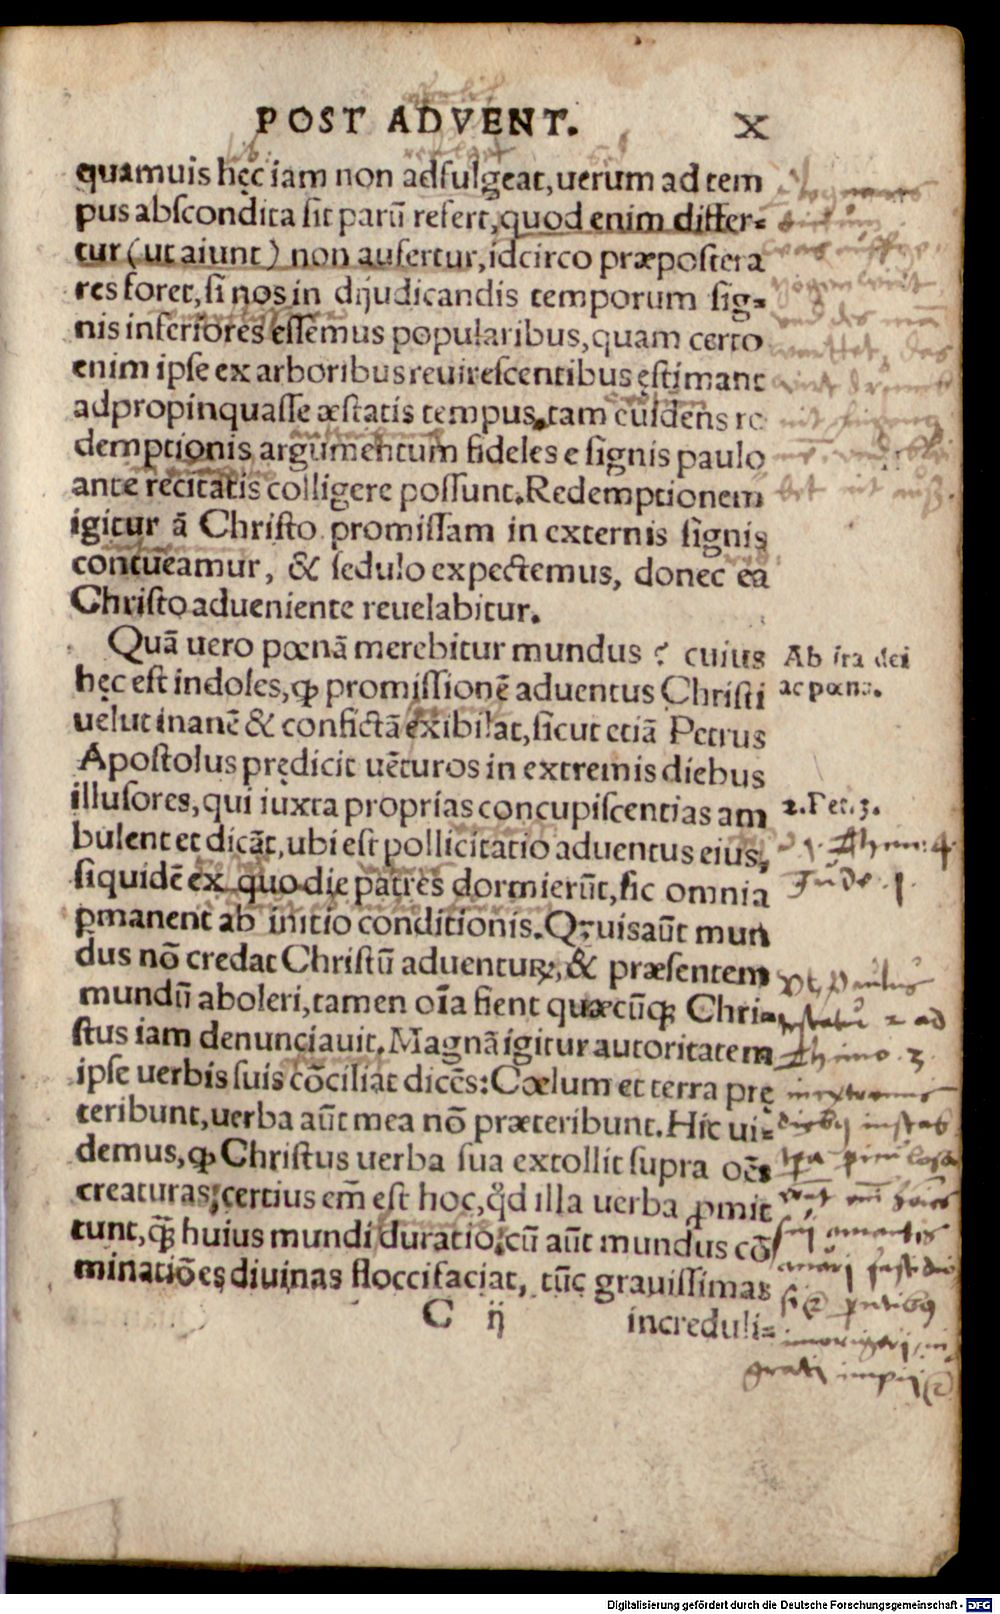 POST ADVENT. X
quamuis hęc iam non adfulgeat, uerum ad tem
pus abscondita sit parũ refert, quod enim differ-
tur (ut aiunt) non aufertur, idcirco præpostera
res foret, si nos in dĳudicandis temporum sig-
nis inferiores essemus popularibus, quam certo
enim ipse ex arboribus reuirescentibus ęstimant
adpropinquasse æstatis tempus, tam euidens re
demptionis argumentum fideles e signis paulo
ante recitatis colligere possunt. Redemptionem
igitur ā Christo promissam in externis signis
contueamur, & sedulo expectemus, donec ea
Christo adueniente reuelabitur.
Quā uero pœnā merebitur mundus? cuius
hęc est indoles, ꝙ promissionē aduentus Christi
uelut inanē & confictā exibilat, sicut etiā Petrus
Apostolus prędicit uēturos in extremis diebus
illusores, qui iuxta proprias concupiscentias am
bulent et dicāt, ubi est pollicitatio aduentus eius,
siquidē ex quo die patres dormierūt, sic omnia
ꝑmanent ab initio conditionis. Quuis aūt mun
dus nō credat Christū aduenturꝝ, & præsentem
mundū aboleri, tamen oīa fient quæcūqꝫ Chri-
stus iam denunciauit. Magnā igitur autoritatem
ipse uerbis suis cōciliat dicēs: Cælum et terra prę
teribunt, uerba aūt mea nō præteribunt. Hic ui-
demus, ꝙ Christus uerba sua extollit supra oēs
creaturas, certius em̄ est hoc, qd̓ illa uerba ꝓmit
tunt, q̃ꝫ huius mundi duratio, cū aūt mundus cō
minatiōes diuinas floccifaciat, tūc grauissimas
C ij increduli-
Ab ira dei
ac pœna.
2. Pet. 3.
1. Thim: 4
Jude. 1.
Vt Paulus
testatur 2 ad
Thimo. 3.
in extremis
dieb9 instab